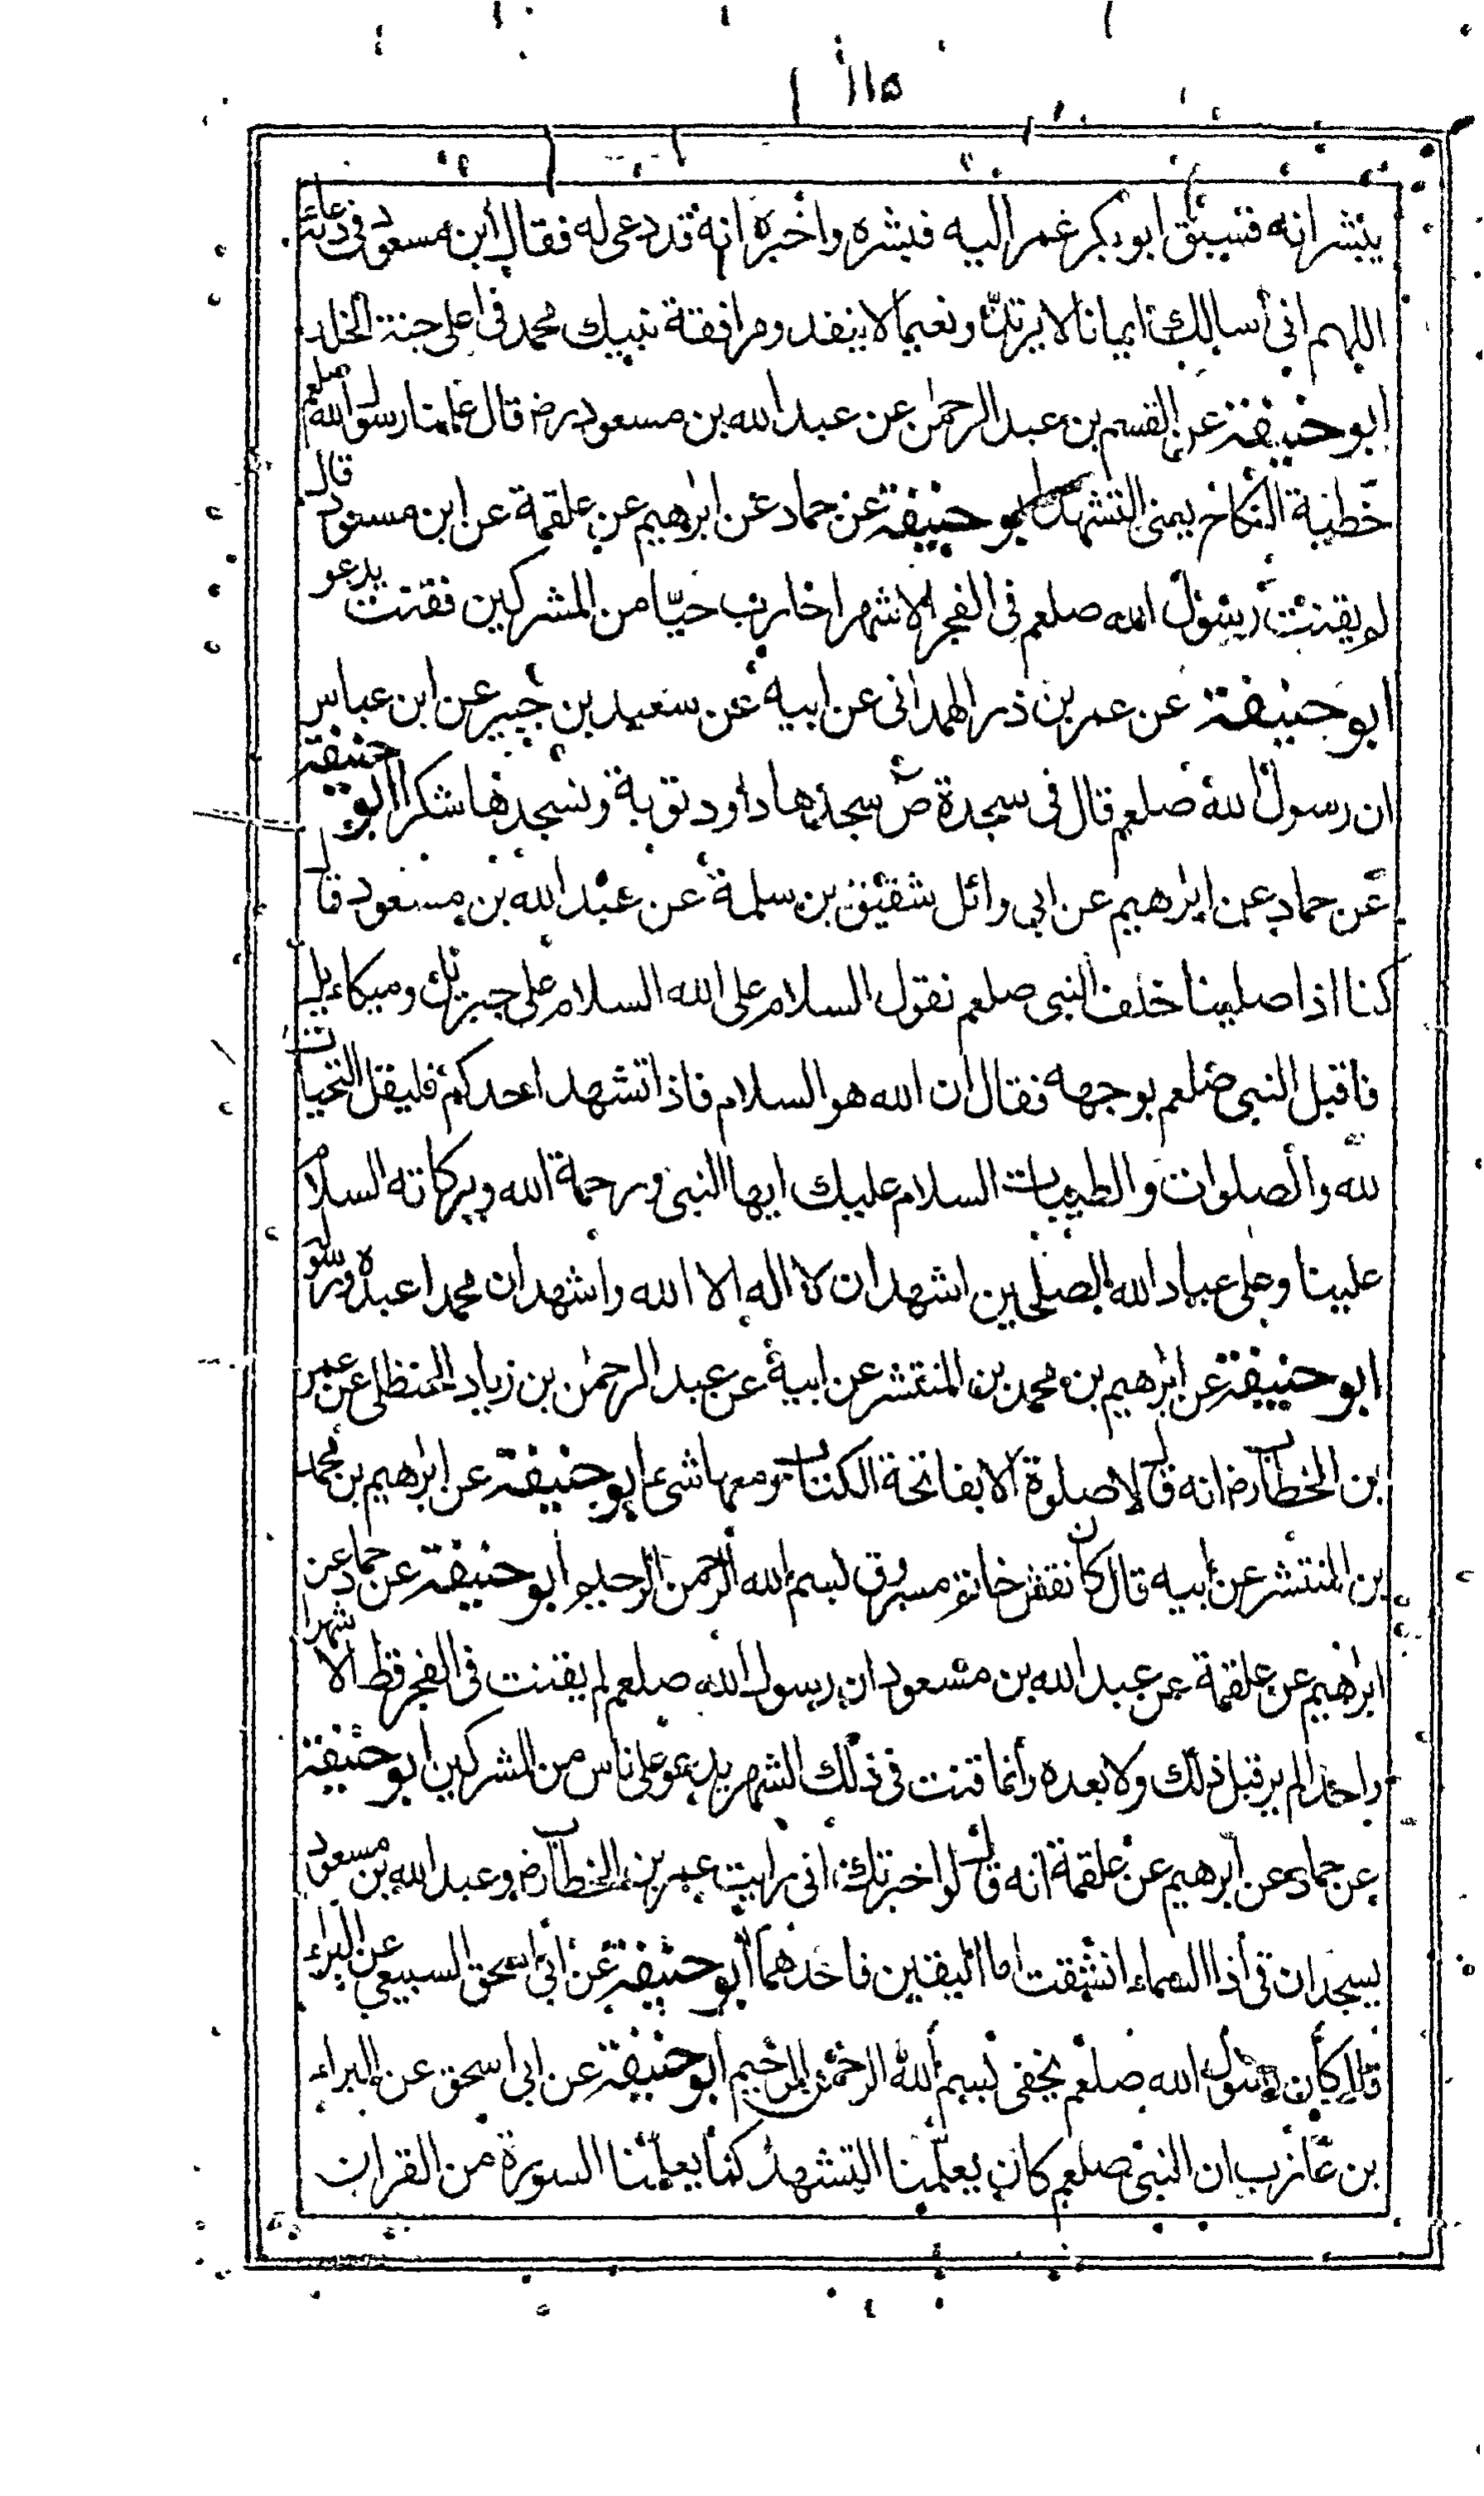 ١١٥
يبشرانه فسبق ابوبكر عمر اليه فبشره واخبره انه قد دعى له فقال ابن مسعود فى دعائه
اللهم انى أسالك ايمانا لا يرتد ونعيما لا ينفد ومرافقة نبيك محمد فى اعلى جنة الخلد
ابو حنيفة عن القسم بن عبد الرحمٰن عن عبد الله بن مسعود رض قال علمنا رسول الله صلعم
خطبة النكاح يعنى التشهد ابو حنيفة عن حماد عن ابرٰهيم عن علقمة عن ابن مسعود قال
لم يقنت رسول الله صلعم فى الفجر الا شهرا حارب حيّا من المشركين فقنت يدعو
ابو حنيفة عن عمر بن ذر الهمدانى عن ابيه عن سعيد بن جبير عن ابن عباس
ان رسول الله صلعم قال فى سجدة ص سجدها داود توبة ونسجدها شكرا ابو حنيفة
عن حماد عن ابرٰهيم عن ابى وائل شقيق بن سلمة عن عبد الله بن مسعود قال
كنا اذا صلينا خلف النبى صلعم نقول السلام على الله السلام على جبرئيل وميكاءيل
فاقبل النبى صلعم بوجهه فقال ان الله هو السلام فاذا تشهد احدكم فليقل التحيات
لله والصلوات والطيبات السلام عليك ايها النبى ورحمة الله وبركاته السلام
علينا وعلى عباد الله الصلحين اشهد ان لا اله الا الله واشهد ان محمدا عبده ورسوله
ابو حنيفة عن ابرٰهيم بن محمد بن المنتشر عن ابيه عن عبد الرحمٰن بن زياد الحنظلى عن عمر
بن الخطاب رض انه قال لا صلوة الا بفاتحة الكتاب ومعها شىء ابو حنيفة عن ابرٰهيم بن محمد
بن المنتشر عن ابيه قال كان نقش خاتم مسروق بسم الله الرحمن الرحيم ابو حنيفة عن حماد عن
ابرٰهيم عن علقمة عن عبد الله بن مسعود ان رسول الله صلعم لم يقنت فى الفجر قط الا شهرا
واحدا لم ير قبل ذلك ولا بعده وانما قنت فى ذلك الشهر يدعو على ناس من المشركين ابو حنيفة
عن حماد عن ابرهيم عن علقمة انه قال لو اخبرتك انى رايت عمر بن الخطاب رض وعبد الله بن مسعود
يسجدان فى اذا السماء انشقت اما اليقين فاحدهما ابو حنيفة عن ابى اسحق السبيعى عن البراء
قال كان رسول الله صلعم يخفى بسم الله الرحمٰن الرحيم ابو حنيفة عن ابى اسحق عن البراء
بن عازب ان النبى صلعم كان يعلمنا التشهد كما يعلمنا السورة من القران